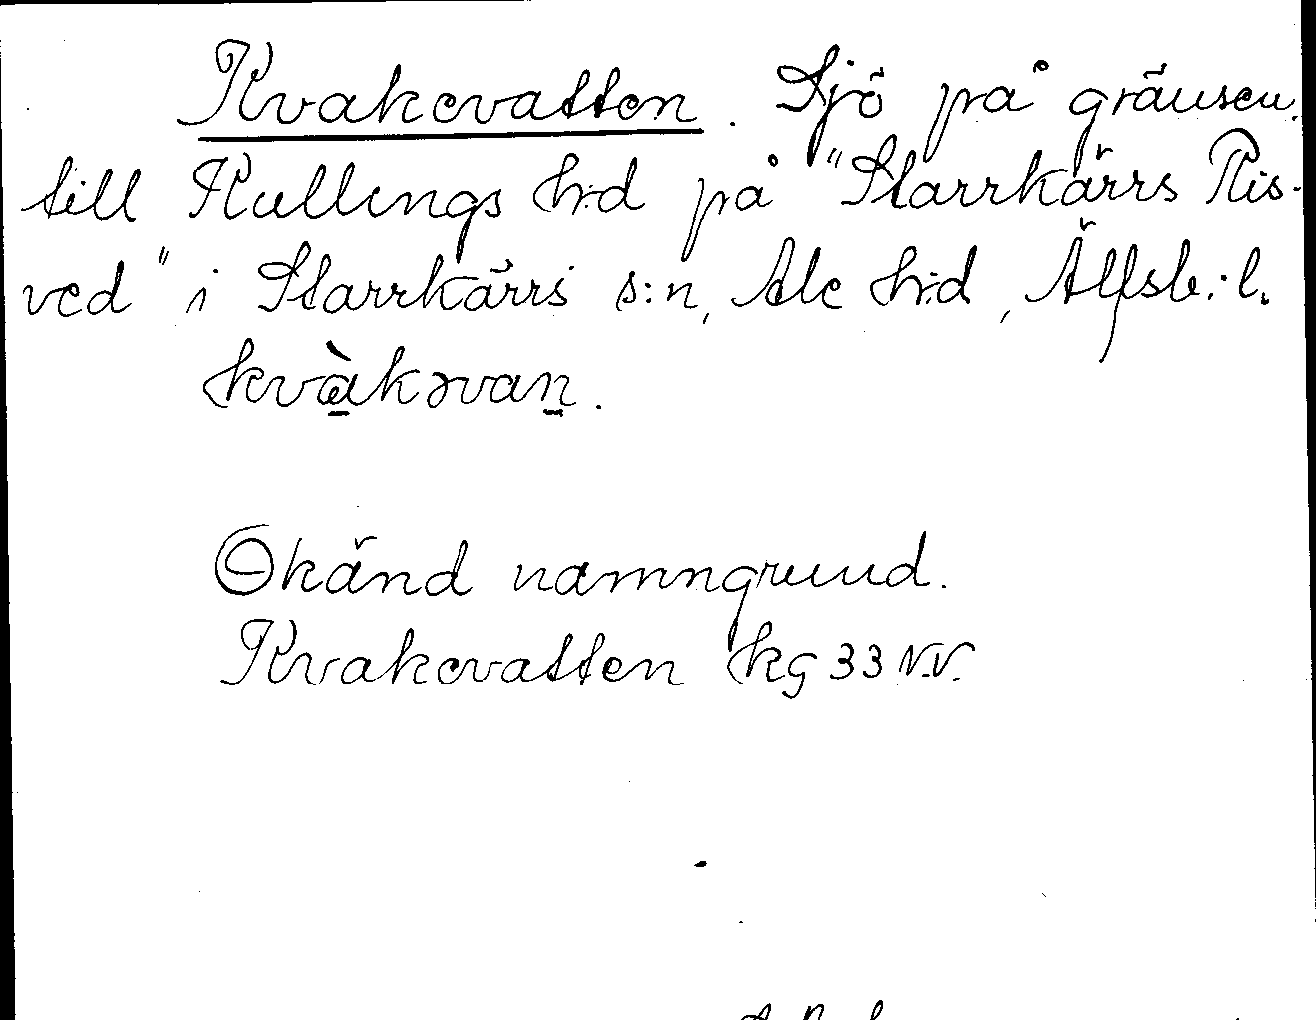 Kvakevatten. Sjö på gränsen
till Kullings h:d på "Starrkärrs Ris-
ved" i Starrkärrs s:n, Ale h:d, Älfsb:l.
kvàkəvan.
Okänd namngrund.
Kvakevatten kg 33 N.V.